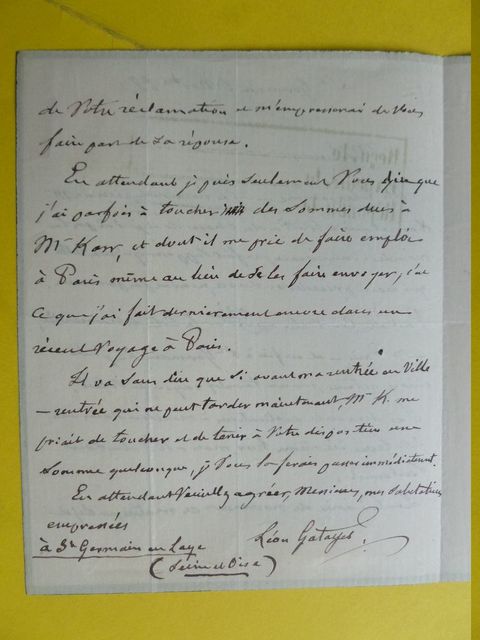 de Votre réclamation et m'empresserai de Vous
faire part de sa réponse.
En attendant je puis seulement Vous dire que
j'ai parfois à toucher des sommes dues à
Mr Karr, et dont il me prie de faire emploi
à Paris même au lieu de les faire envoyer, c'est
ce que j'ai fait dernièrement encore dans un
récent voyage à Paris.
Il va sans dire que si avant ma rentrée en Ville
— rentrée qui ne peut tarder maintenant, Mr K. me
priait de toucher et de tenir à Votre disposition une
somme quelconque, je Vous la ferais passer immédiatement.
En attendant Veuillez agréer, Messieurs, mes salutations
empressées
à St Germain en Laye
Léon Gatayes
(Seine et Oise)